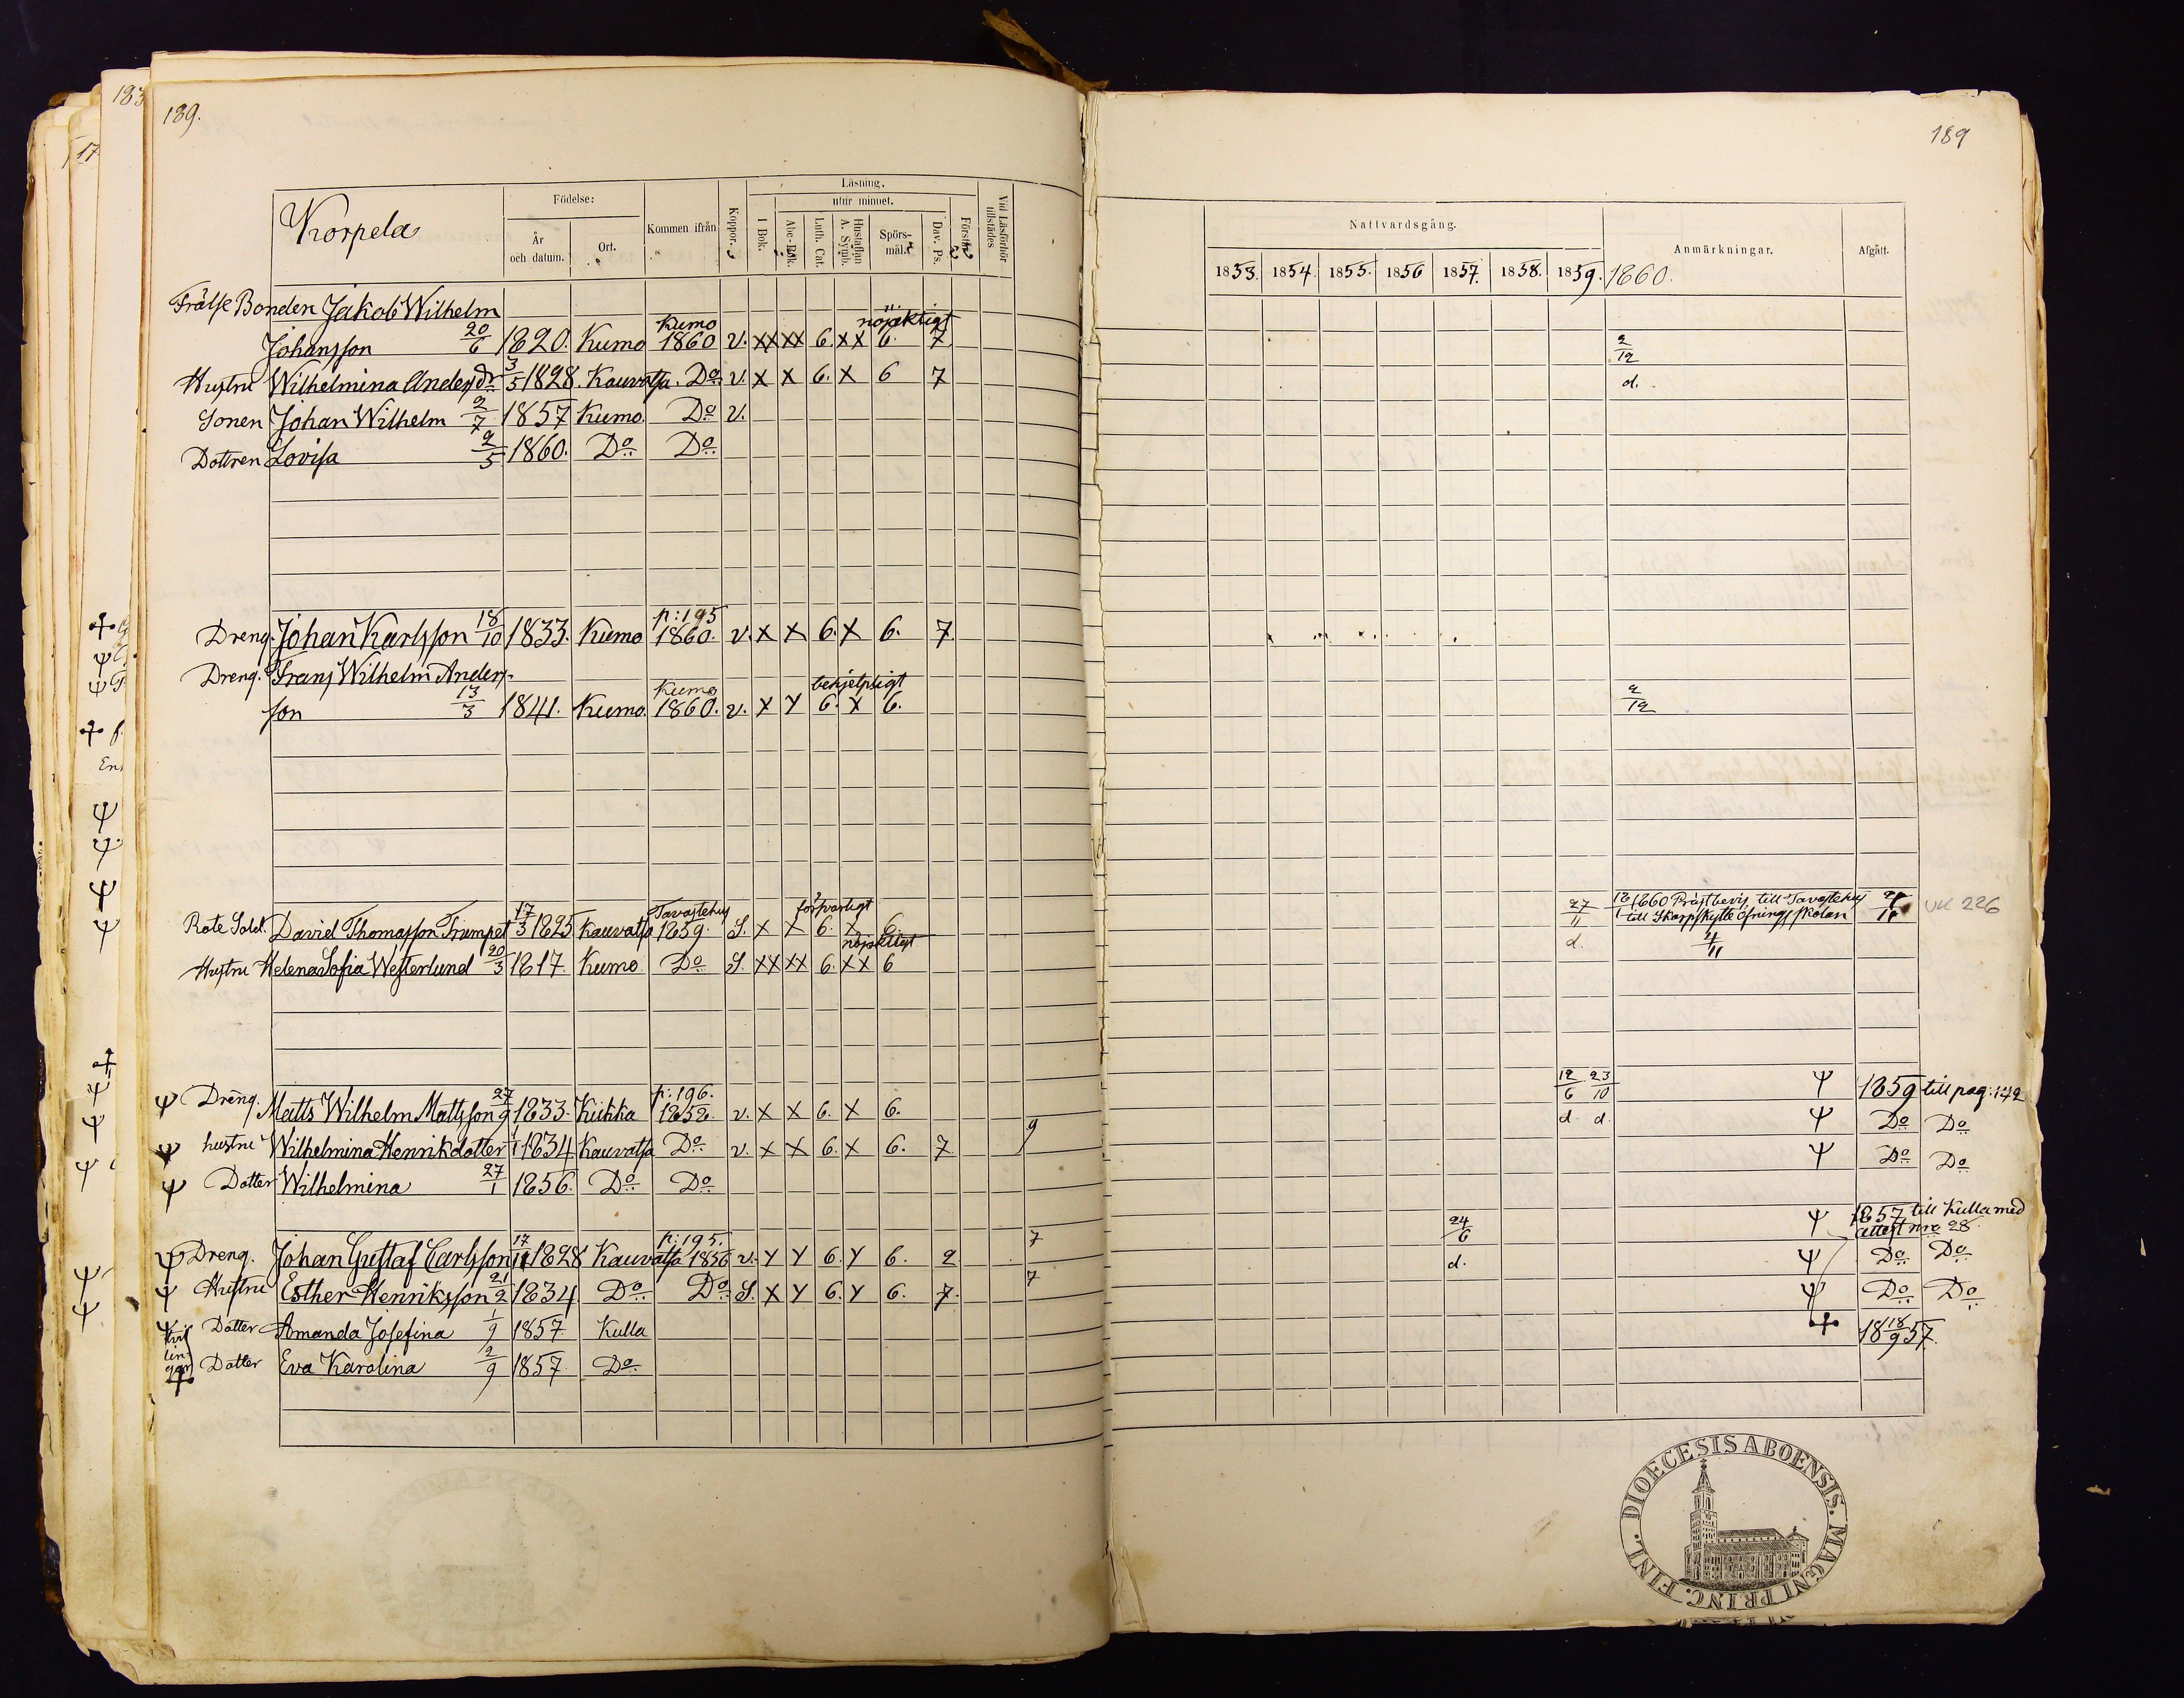 183
17
189.
189
Korpela
Födelse:
År och datum.
Ort.
Kommen ifrån
Koppor.
Läsning.
I Bok.
utur minnet.
Abc-Bok.
Luth. Cat.
Hustaflan A. Symb.
Spörs-mål.
Dav. Ps.
Förstår
Vid Läsförhör tillstädes
Nattvardsgång.
1853. 1854. 1855. 1856 1857. 1858. 1859. 1860.
Anmärkningar.
Afgått.
Frälse Bonden Jakob Wilhelm
Johansson 20/6 1820. Kumo Kumo 1860 v. XX XX 6. XX nöjaktigt 6. 7 2/12
Hustru Wilhelmina Andersdr 3/5 1828. Kauvatsa. Do v. X X 6. X 6 7 d.
Sonen Johan Wilhelm 2/7 1857 Kumo. Do v.
Dottren Lovisa 2/5 1860. Do Do
Dreng. Johan Karlsson 18/10 1833. Kumo p:195 1860. v. X X 6. X 6. 7.
Dreng. Frans Wilhelm Anders-
son 13/3 1841. Kumo. Kumo 1860. v. X Y behjelpligt 6. X 6. 2/12
Rote Sold. David Thomasson Trumpet 17/3 1825 Kauvatsa Tavastehus 1859. S. X X försvarligt 6. X 6. 27/11 1860 Prästbevis till Tavastehus
till Skarpskytte öfningsskolan
UK 226
Hustru Helena Sofia Westerlund 20/3 1817. Kumo Do S. XX XX 6. XX nöjaktigt 6 d. 4/11
Ψ Dreng. Matts Wilhelm Mattsson 27/9 1833. Kiikka p:196. 1858. v. X X 6. X 6. 12/6 23/10 Ψ 1859 till pag: 142
Ψ hustru Wilhelmina Henrikdotter 1834 Kauvatsa Do v. X X 6. X 6. 7. 9 d. d. Ψ Do Do
Ψ Dotter Wilhelmina 27/1 1856. Do Do Ψ Do Do
Ψ Dreng. Johan Gustaf Carlsson 17/11 1828 Kauvatsa p:195. 1856 v. Y Y 6. Y 6. 2 7 24/6 Ψ 1857 till Kulla med
attest nro 28.
Ψ Hustru Esther Henriksson 21/2 1834. Do Do S. X Y 6. Y 6. 7. 7 d. Ψ Do Do
Ψ Dotter Amanda Josefina 1/9 1857. Kulla Ψ Do Do
Tvillingar Dotter Eva Karolina 2/9 1857. Do 18 18/9 57.
DIOECESIS ABOENSIS. MAGNI PRINC. FINL.